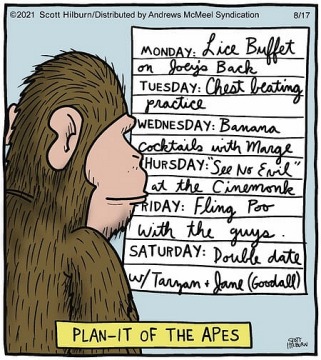 ©2021 Scott Hilburn/Distributed by Andrews McMeel Syndication 8/17
MONDAY: Lice Buffet
on Joey's Back
TUESDAY: Chest beating
practice
WEDNESDAY: Banana
cocktails with Marge
HURSDAY: "See No Evil"
at the Cinemonk
RIDAY: Fling Poo
with the guys.
SATURDAY: Double date
w/ Tarzan + Jane (Goodall)
SCOTT
HILBURN
PLAN-IT OF THE APES